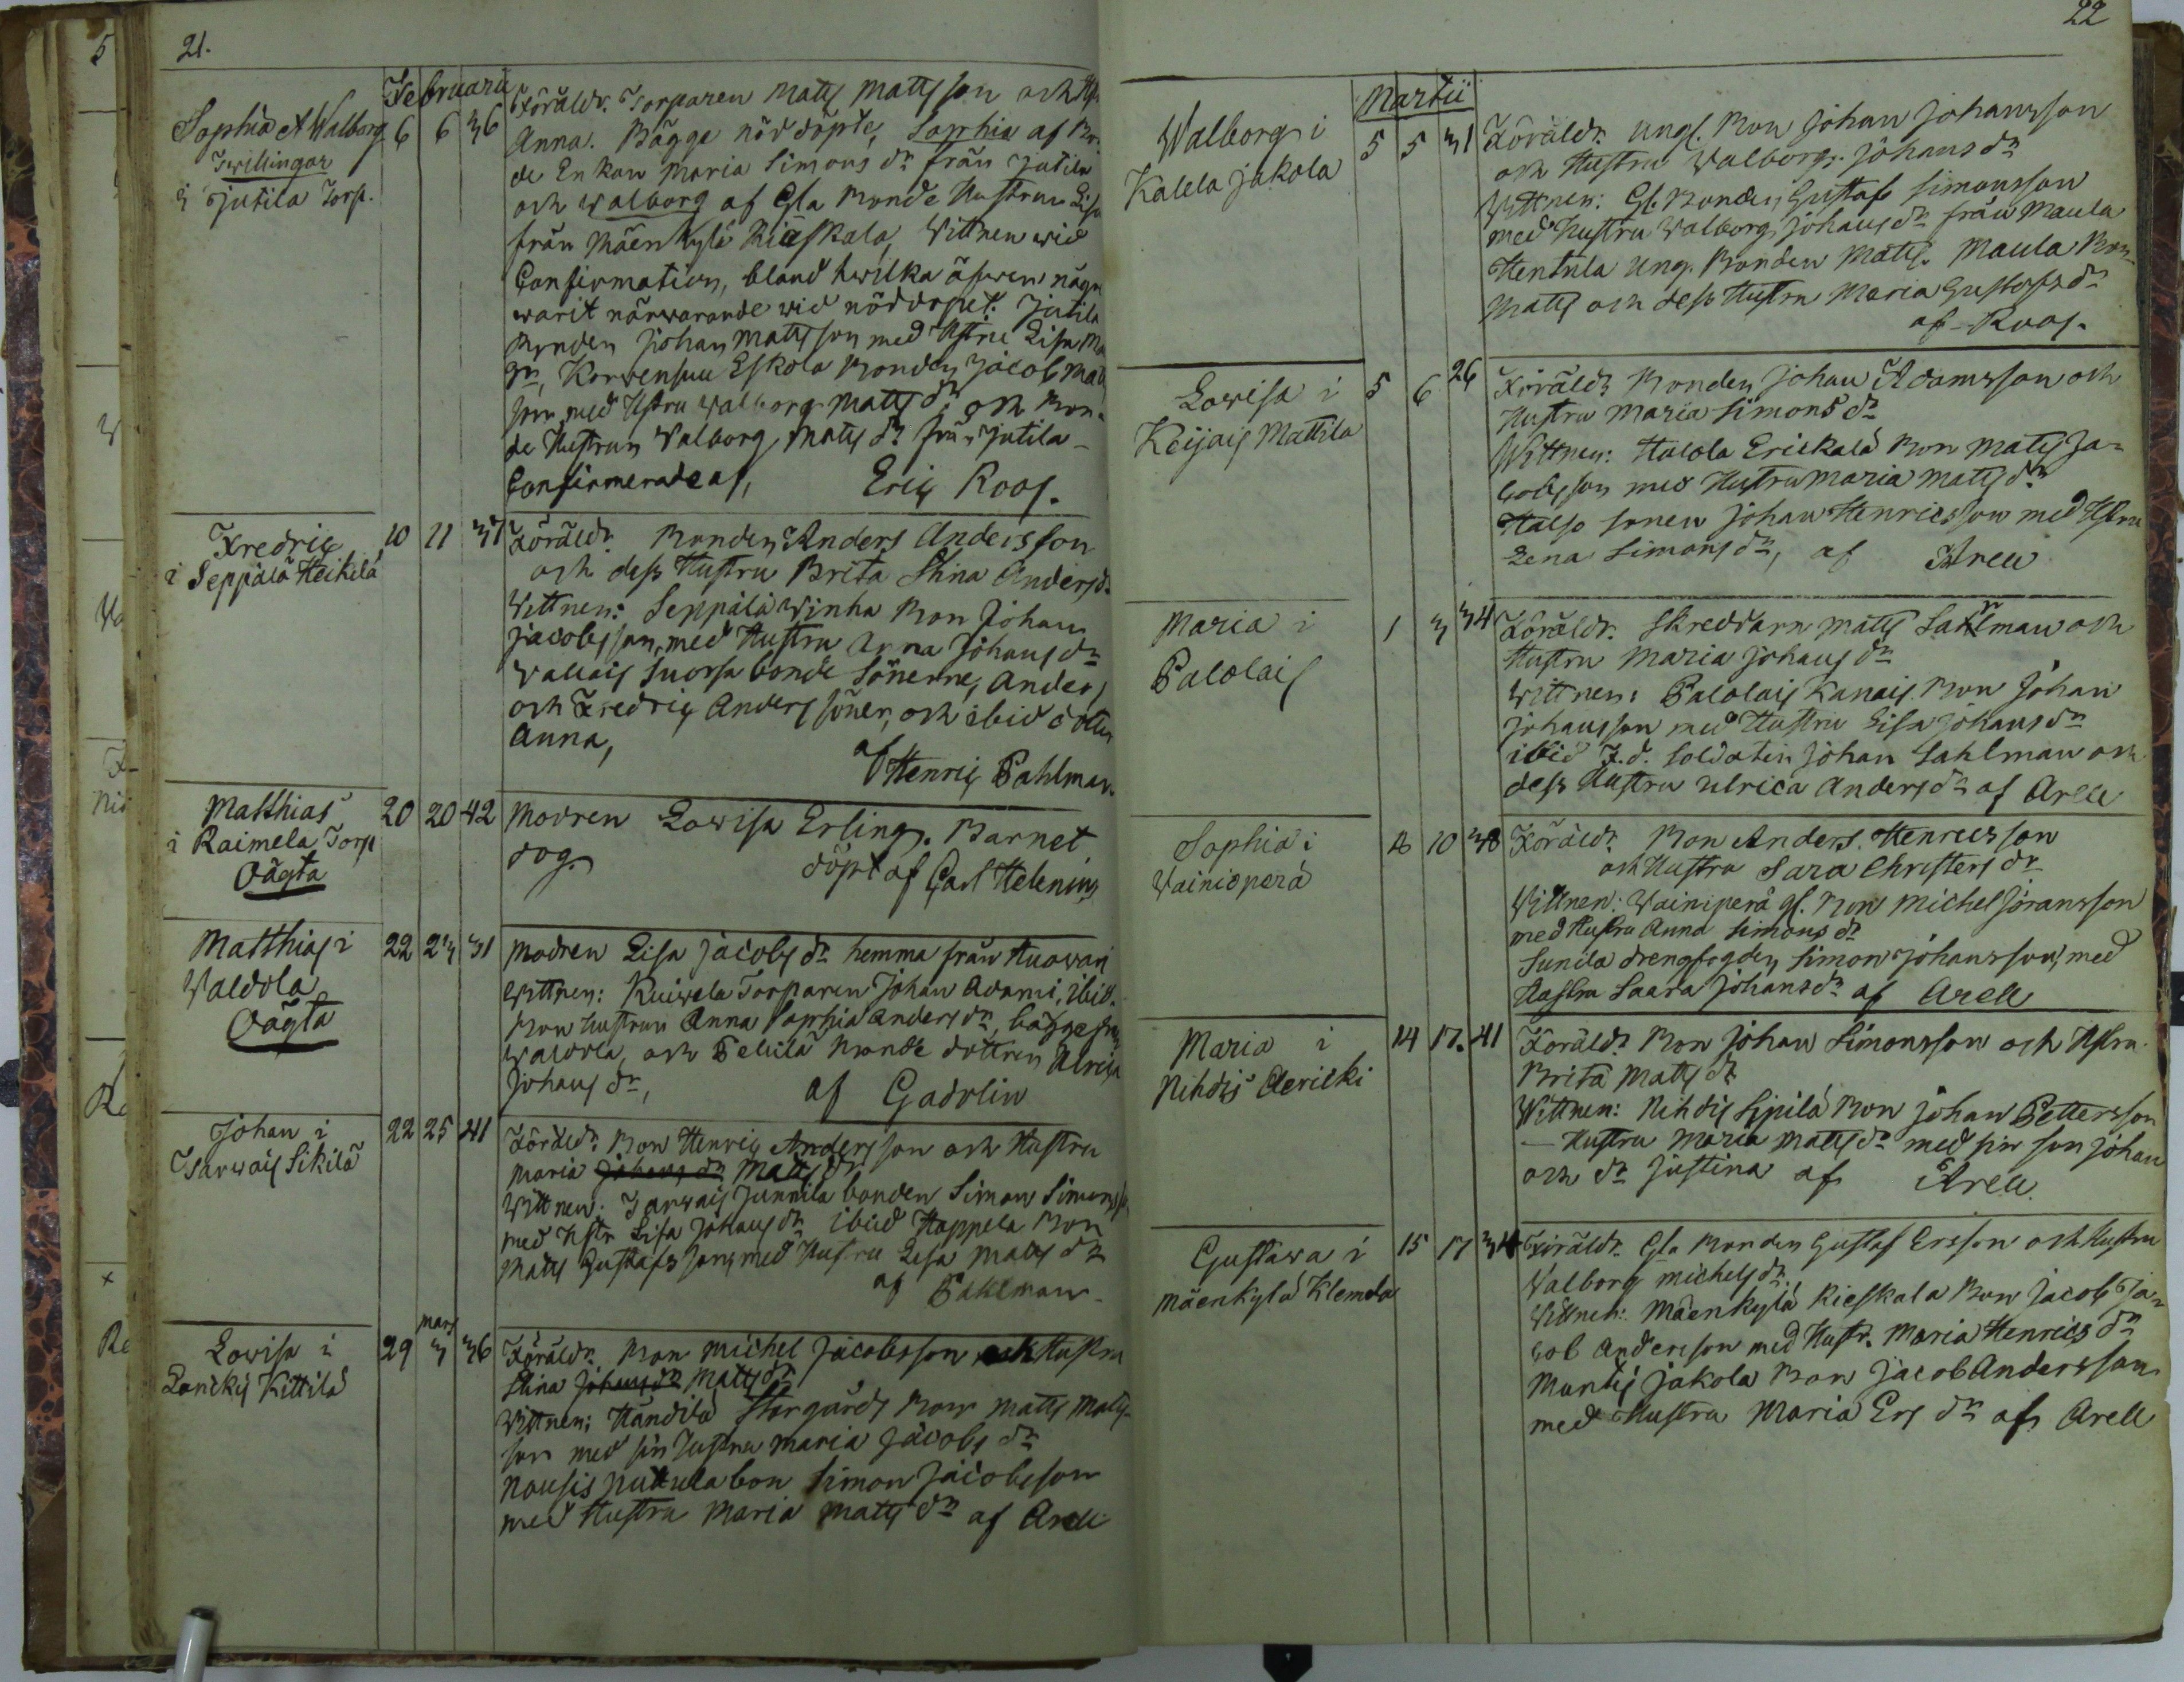 21.
Februarii
Sophia & Walborg
Twillingar
i Jutila Torp.
6 6 36
Föräldr. Torparen Matts Mattsson och Hu
Anna. Bägge nöddöpte, Sophia af Bon
de Enkan Maria Simons dr från Jutila
och Walborg af Gla Bonde Hustrun Lisa
från Mäenkylä Kieskala, Wittnen wid
Confirmation, bland hwilka äfwen någre
warit närwarande wid nöddopet: Jutila
Bonden Johan Mattsson med Hustru Lisa Ma
dr, Korwensuu Eskola Bonden Jacob Matts
son med Hstru Walborg Matts dr och Bon-
de Hustrun Walborg Matts dr från Jutila
Confirmerade af, Eric Roos.
Fredric
i Seppälä Heikilä
10 11 37
Föräldr. Bonden Anders Andersson
och dess Hustru Brita Stina Anders d.
Wittnen: Seppälä Winha Bon Johan
Jacobsson, med Hustru Anna Johans dr
Wallais Suorsa bonde Sönerne, Anders
och Fredric Anders söner, och ibid dotter
Anna,
af Henric Pahlman.
Matthias
i Raimela Torp
Oägta
20 20 42
Modren Lowisa Erling. Barnet
dog. döpt af Carl Helenius
Matthias i
Waldola
Oägta
22 23 31
Modren Lisa Jacobs dr hemma från Huowari
Wittnen: Kuiwela Torparen Johan Adami, ibid.
Bon hustrun Anna Sophia Anders dr, bägge från
Waldola, och Pellilä Bonde dottren Ulrica
Johans dr, af Gadolin
Johan i
Tsarwais Sikilä
22 25 41
Föräldr. Bon Henric Andersson och Hustru
Maria Johans dr Matts dr
Wittnen: Tsarwais Junnila bonden Simon Simonss
med Hstr Lisa Johans dr ibid Happela Bon
Matts Gustafsson, med Hustru Lisa Matts dr
af Pahlman.
Lowisa i
Lancky Kittilä
29 mars 3 36
Föräldr. Bon Michel Jacobsson och Hustru
Stina Johans dr Matts dr
Wittnen: Händilä Storgårds Bon Matts Matts-
son med sin Hustru Maria Jacobs dr
Nousis Puttula bon Simon Jacobsson
med Hustru Maria Matts dr af Arell
22
Martii
Walborg i
Kalela Jakola
5 5 31
Föräldr. ungl. Bon Johan Johansson
och Hustru Walborg Johans dr
Wittnen: Gl. Bonden Gustaf Simonsson
med Hustru Walborg Johans dr från Maula
Hentula ung. Bonden Matts. Maula Bon
Matts och dess Hustru Maria Gustafs dr
af Roos.
Lowisa i
Keijais Mattila
5 6 26
Föräldr. Bonden Johan Adamsson och
Hustru Maria Simons dr
Wittnen: Halola Erickala Bon Matts Ja-
cobsson med Hustru Maria Matts dr
Halso sonen Johan Henricsson med Hstru
Lena Simons dr, af Arell
Maria i
Palolais
1 3 34
Föräldr. Skreddarn Matts Sahlman och
Hustru Maria Johans dr
Wittnen: Palolais Kanais Bon Johan
Johansson med Hustru Lisa Johans dr
ibid F.d. Soldaten Johan Sahlman och
dess Hustru Ulrica Anders dr af Arell
Sophia i
Wainioperä
10 38
Föräldr. Bon Anders Henricsson
och Hustru Sara Christers dr
Wittnen: Wainiperä gl. Bon Michel Jöransson
med Hustru Anna Simons dr
Sunila drengfogden Simon Johansson, med
Hustru Saara Johans dr af Arell
Maria i
Nihdis Aerilki
14 17. 41
Föräldr. Bon Johan Simonsson och Hstru
Brita Matts dr
Wittnen: Nihdis Sipilä Bon Johan Pettersson
— Hustru Maria Matts dr med sin son Johan
och dr Justina af Arell
Gustawa i
Mäenkylä Klemela
15 17 34
Föräldr. Gla Bonden Gustaf Ersson och Hustru
Walborg Michels dr.
Wittnen: Mäenkylä Kieskala Bon Jacob Ja-
cob Andersson med Hustr. Maria Henrics dr
Muntis Jakola Bon Jacob Andersson
med Hustru Maria Ers dr af Arell